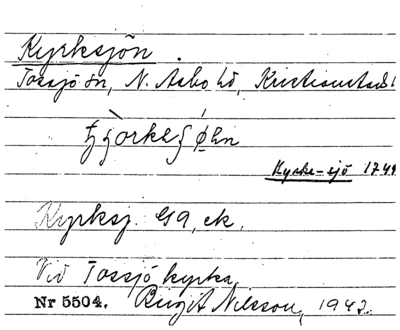 Kyrksjön
Tossjö sn, N. Åsbo hd, Kristianstads l
Kyrke-sjö 1749
Kyrksj. GA, ek.
Vid Tossjö kyrka
Nr 5504. Birgit Nilsson, 1942.